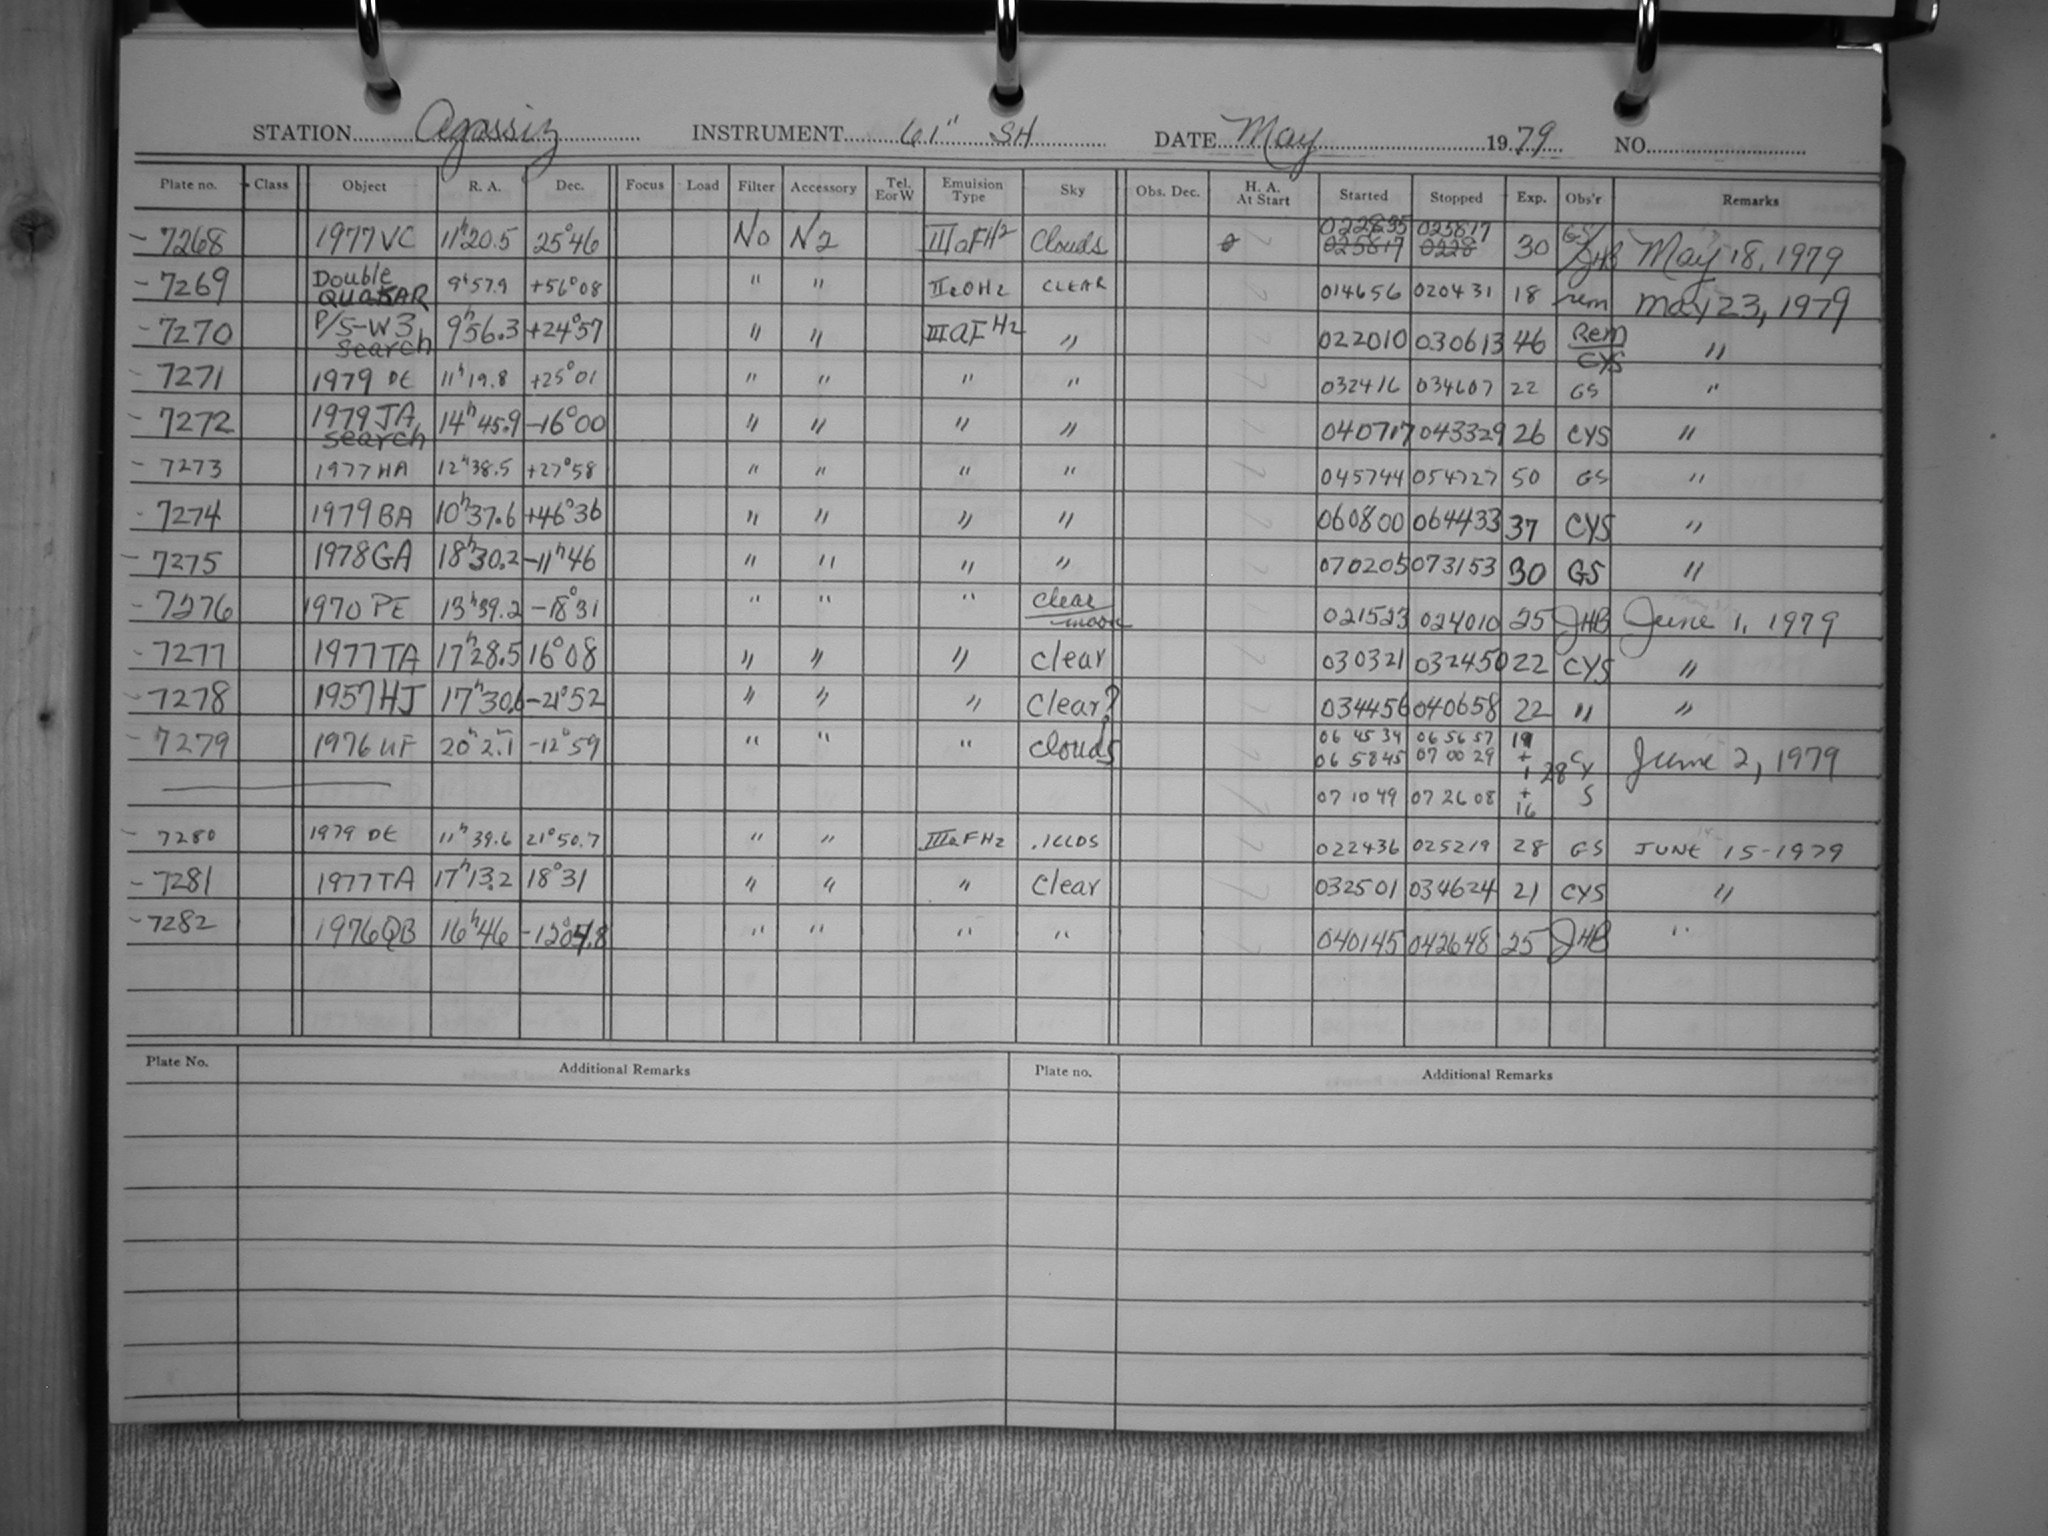 STATION Agassiz INSTRUMENT 61" SH DATE May 1979 NO.
Plate no. Class Object R. A. Dec. Focus Load Filter Accessory Tel. E or W Emulsion Type Sky Obs. Dec. H. A. At Start Started Stopped Exp. Obs'r Remarks
7268 1977 VC 11h20.5 25°46 No N2 IIIaFH2 Clouds 022835 025817 025817 0228 30 GS/JHB May 18, 1979
7269 Double QUASAR 9h57.9 +56°08 " " IIaOH2 CLEAR 014656 020431 18 rem May 23, 1979
7270 P/S-W3 search 9h56.3 +24°57 " " IIIaFH2 " 022010 030613 46 Rem/CYS "
7271 1979 DE 11h19.8 +25°01 " " " " 032416 034607 22 GS "
7272 1979 JA search 14h45.9 -16°00 " " " " 040717 043329 26 CYS "
7273 1977 HA 12h38.5 +27°58 " " " " 045744 054727 50 GS "
7274 1979 BA 10h37.6 +46°36 " " " " 060800 064433 37 CYS "
7275 1978 GA 18h30.2 -11h46 " " " " 070205 073153 30 GS "
7276 1970 PE 13h39.2 -18°31 " " " clear/moon 021523 024010 25 JHB June 1, 1979
7277 1977 TA 17h28.5 16°08 " " " clear 030321 032450 22 CYS "
7278 1957 HJ 17h30.6 -21°52 " " " clear? 034456 040658 22 " "
7279 1976 UF 20h2.1 -12°59 " " " clouds 06 45 34 06 56 57 19 June 2, 1979
06 58 45 07 00 29 + 1 28 CY
07 10 49 07 26 08 + 16 S
7280 1979 DE 11h39.6 21°50.7 " " IIIaFH2 .1CLDS 022436 025219 28 GS JUNE 15-1979
7281 1977 TA 17h13.2 18°31 " " " Clear 032501 034624 21 CYS "
7282 1976 QB 16h46 " " " " 040145 042648 25 JHB "
Plate No. Additional Remarks Plate no. Additional Remarks